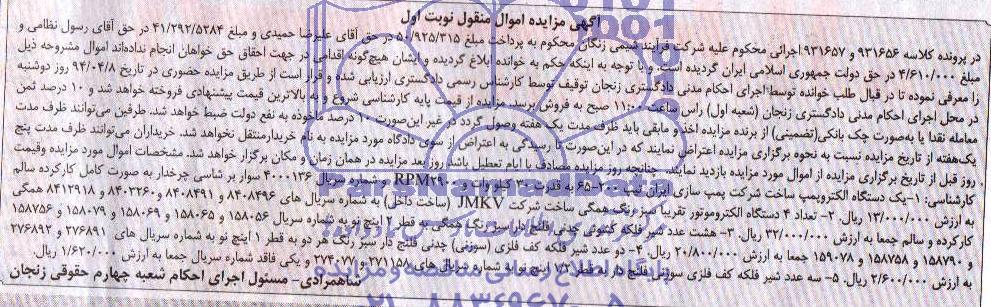 آگهی مزایده اموال منقول نوبت اول
در پرونده کلاسه ۹۳۱۶۵۶ و ۹۳۱۶۵۷ اجرائی محکوم علیه شرکت فرآیند شیمی زنگان محکوم به پرداخت مبلغ ۵۰/۹۲۵/۳۱۵ در حق آقای علیرضا حمیدی و مبلغ ۴۱/۲۹۲/۵۲۸۴ در حق آقای رسول نظامی و
مبلغ ۴/۶۱۰/۰۰۰ در حق دولت جمهوری اسلامی ایران گردیده است و با توجه به اینکه حکم به خوانده ابلاغ گردیده و ایشان هیچ‌گونه اقدامی در جهت احقاق حق خواهان انجام نداده‌اند اموال مشروحه ذیل
را معرفی نموده تا در قبال طلب خوانده توسط اجرای احکام مدنی دادگستری زنجان توقیف توسط کارشناس رسمی دادگستری ارزیابی شده و قرار است از طریق مزایده حضوری در تاریخ ۹۴/۰۴/۸ روز دوشنبه
در محل اجرای احکام مدنی دادگستری زنجان (شعبه اول) راس ساعت ۱۱:۰۰ صبح به فروش برسد. مزایده از قیمت پایه کارشناسی شروع و به بالاترین قیمت پیشنهادی فروخته خواهد شد و ۱۰ درصد ثمن
معامله نقدا یا به‌صورت چک بانکی (تضمینی) از برنده مزایده اخذ و مابقی باید ظرف مدت یک هفته وصول گردد در غیر این‌صورت ۱۰ درصد ماخوذه به نفع دولت ضبط خواهد شد. طرفین می‌توانند ظرف مدت
یک‌هفته از تاریخ مزایده نسبت به نحوه برگزاری مزایده اعتراض نمایند که در این‌صورت تا رسیدگی به اعتراض از سوی دادگاه مورد مزایده به نام خریدار منتقل نخواهد شد. خریداران می‌توانند ظرف مدت پنج
روز قبل از تاریخ برگزاری مزایده از اموال مورد مزایده بازدید نمایند. چنانچه روز مزایده مصادف با ایام تعطیل باشد روز بعد مزایده در همان زمان و مکان برگزار خواهد شد. مشخصات اموال مورد مزایده وقیمت
کارشناسی: ۱-یک دستگاه الکتروپمپ ساخت شرکت پمپ سازی ایران تیپ ۲۰۰-۶۵ به قدرت ۳۰ کیلو وات و RPM۲۹۰۰ و شماره سریال ۴۰۰۰۱۳۶ سوار بر شاسی چرخدار به صورت کامل کارکرده سالم
به ارزش ۱۳/۰۰۰/۰۰۰ ریال. ۲- تعداد ۴ دستگاه الکتروموتور تقریبا سبز رنگ همگی ساخت شرکت JMKV (ساخت داخل) به شماره سریال های ۸۴۰۸۴۹۶ و ۸۴۰۸۴۹۱ و ۸۴۰۳۲۶۰ و ۸۴۱۲۹۱۸ همگی
کارکرده و سالم جمعا به ارزش ۳۲/۰۰۰/۰۰۰ ریال. ۳- هشت عدد شیر فلکه کشوئی چدنی فلنج دار سبز رنگ همگی به قطر ۲ اینچ نو به شماره سریال ۱۵۸۰۵۶ و ۱۵۸۰۶۵ و ۱۵۸۰۶۹ و ۱۵۸۰۷۹ و ۱۵۸۷۵۶
و ۱۵۸۷۹۰ و ۱۵۸۷۵۸ و ۱۵۹۰۷۸ جمعا به ارزش ۲۰/۸۰۰/۰۰۰ ریال. ۴- دو عدد شیر فلکه کف فلزی (سوزنی) چدنی فلنج دار سبز رنگ هر دو به قطر ۱ اینچ نو به شماره سریال های ۲۷۶۸۹۱ و ۲۷۶۸۹۲
به ارزش ۲/۶۰۰/۰۰۰ ریال. ۵- سه عدد شیر فلکه کف فلزی سوزنی فلنج دار به قطر ۱/۲ اینچ نو به شماره سریال های ۲۷۱۱۵۸ و ۲۷۴۰۷۷ و یکی فاقد شماره سریال جمعا به ارزش ۱/۶۲۰/۰۰۰ ریال.
شاهمرادی- مسئول اجرای احکام شعبه چهارم حقوقی زنجان